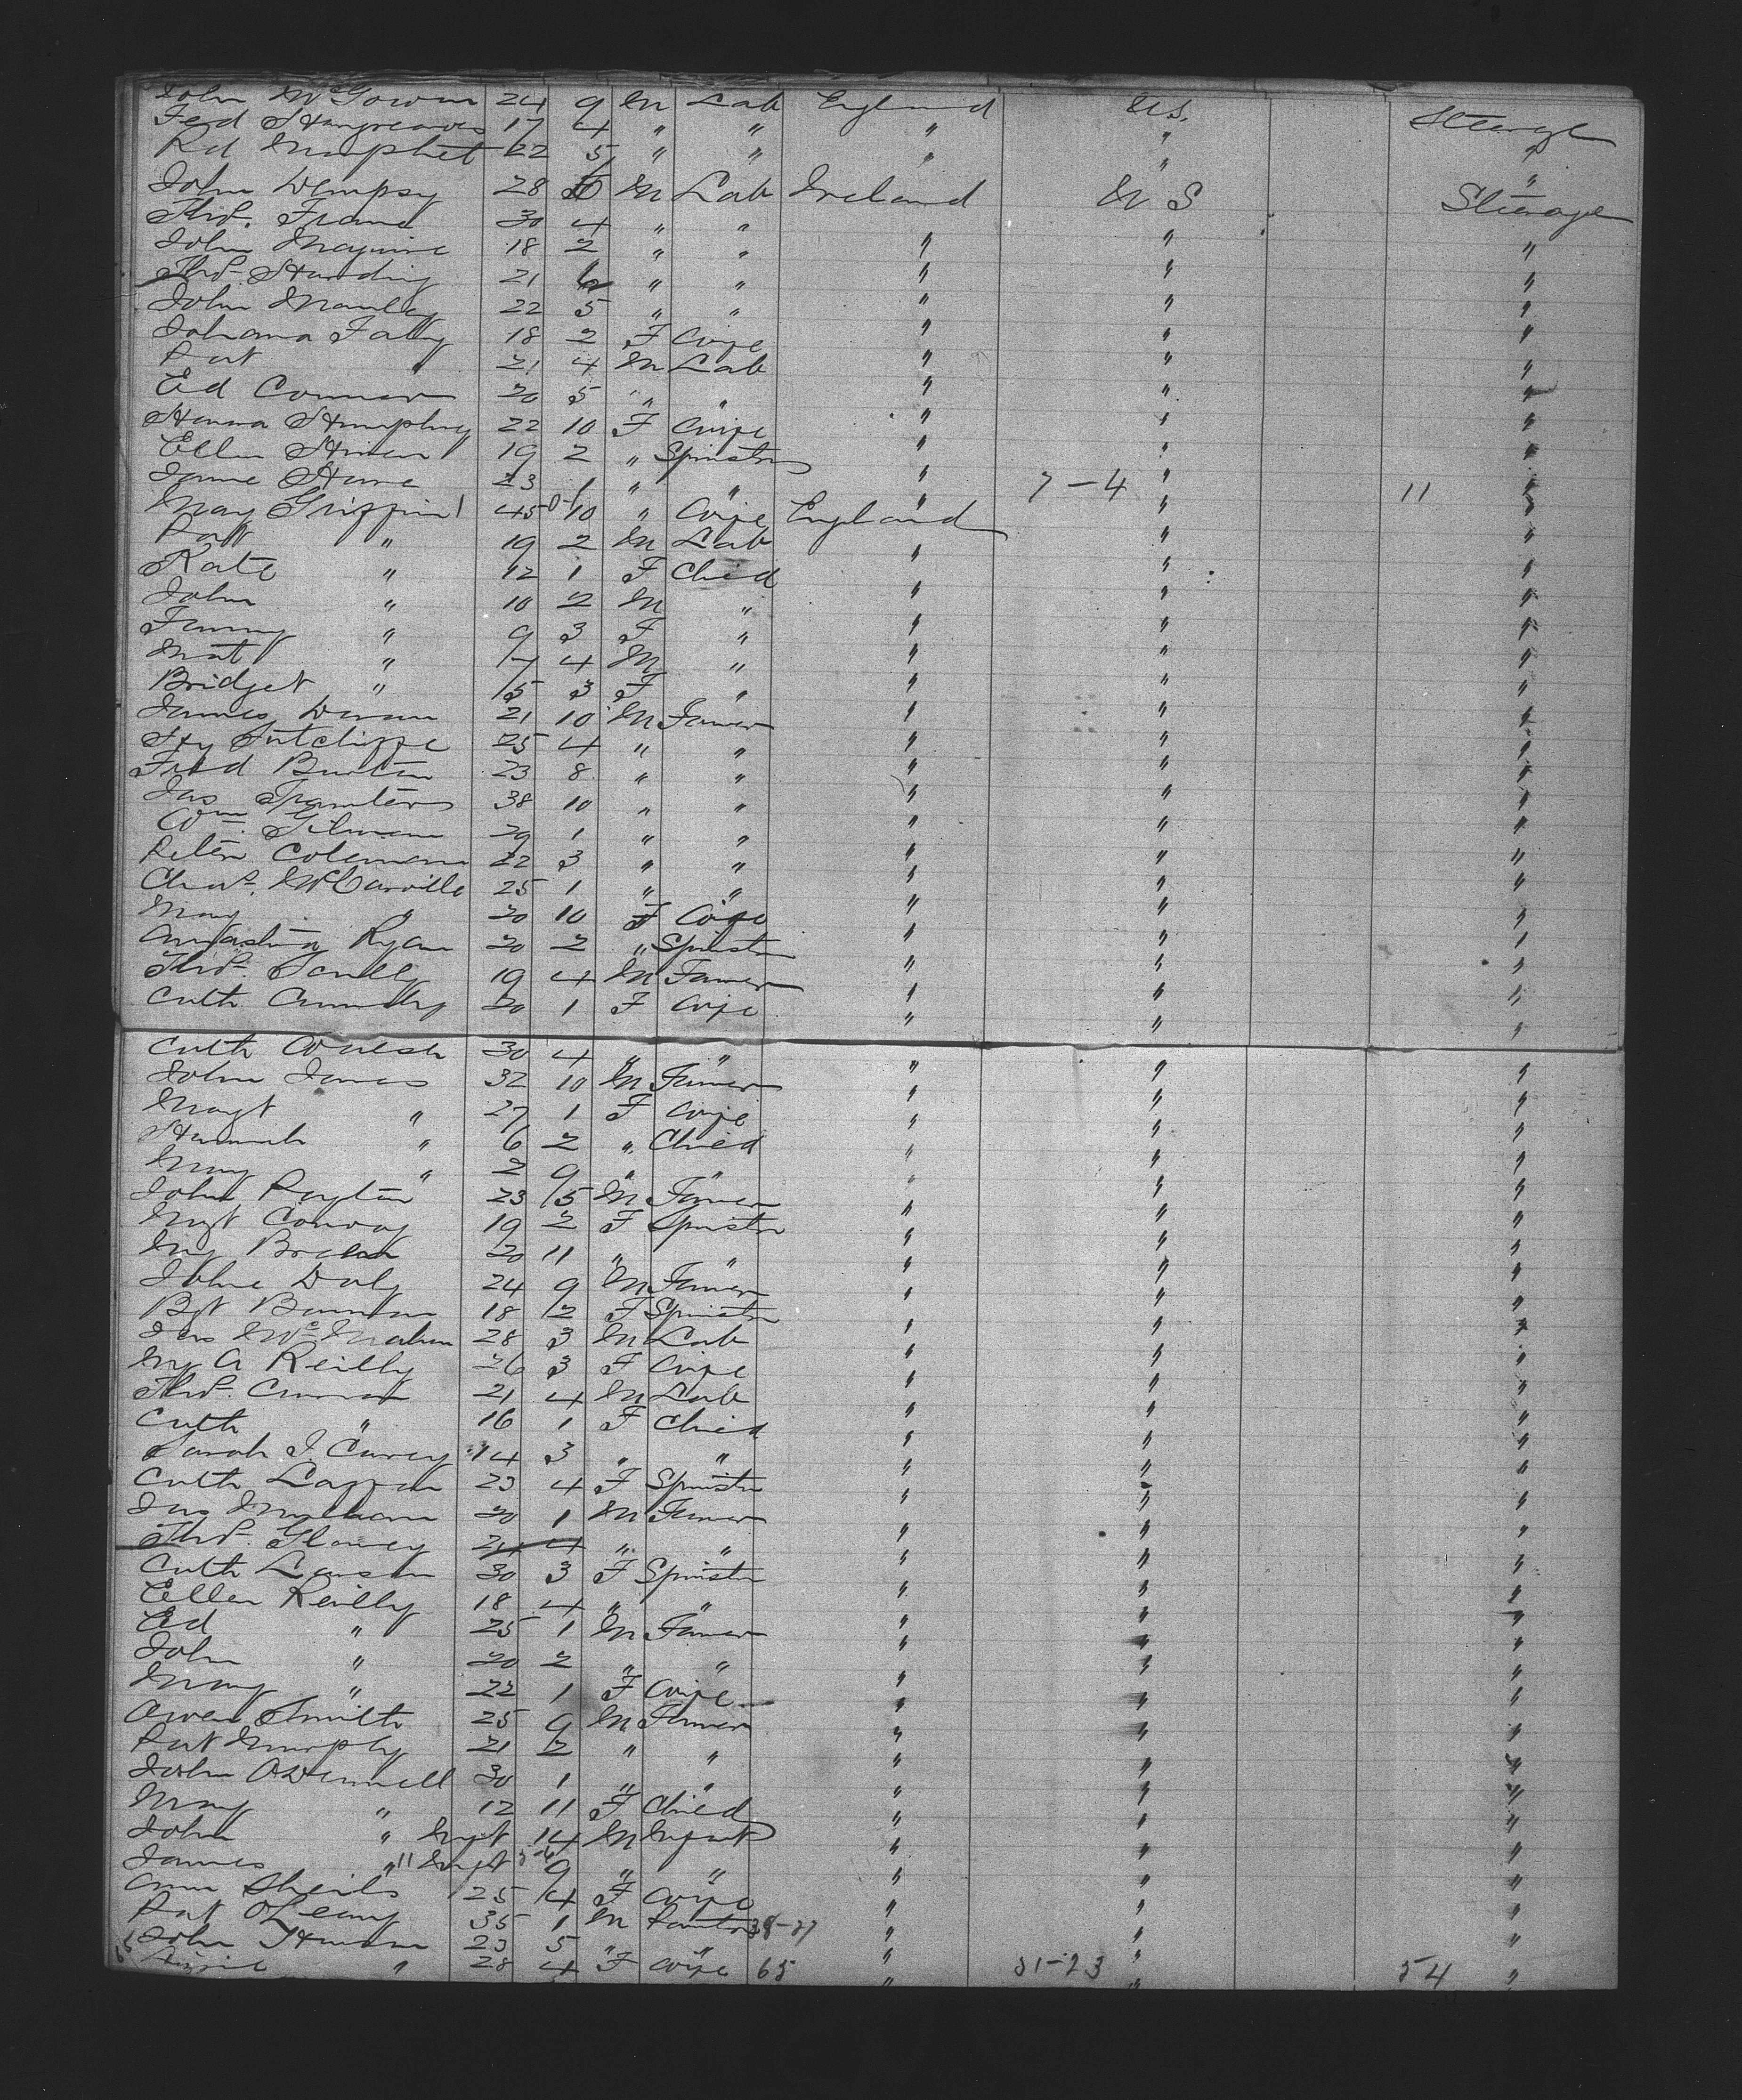 John McGowan 24 9 M Lab England U.S. Steerage
Fed Hargreaves 17 4 " " " " "
Rd Humphet 22 5 " " " " "
John Dempsy 28 M Lab Ireland U S Steerage
Thos. Frame 30 4 " "
John Maguire 18 2 " " " " "
Thos. Harding 21 6 " " " " "
John Manley 22 5 " " " " "
Johana Fahy 18 2 F Wife " " "
Pat " 21 4 M Lab " " "
Ed Connor 20 5 " " " " "
Hanna Humphrey 22 10 F Wife " " "
Ellen 19 2 " Spinster " " "
Jane Hare 23 1 " " " 7-4 " 11 "
May Griffin 45 10 " Wife England " "
Patt " 19 2 M Lab " "
Kate " 12 1 F Child " " "
John " 10 2 M " " " "
Fanny " 9 3 F " " " "
Mat " 7 4 M " " " "
Bridget " 5 3 F " " " "
James Devan 21 10 M Farmer " " "
Hy Sutcliffe 25 4 " " " " "
Fred Burton 23 8 " " " " "
Jas 38 10 " " " " "
Wm. Gilman 29 1 " " " " "
Peter Coleman 22 3 " " " " "
Chas. McCarville 25 1 " " " " "
May " 20 10 F Wife " " "
Ryan 20 2 " Spinster " " "
Thos. Scully 19 4 M Farmer " " "
Cath 20 1 F Wife " " "
Cath Walsh 30 4 " " " " "
John James 32 10 M Farmer " " "
Magt " 27 1 F Wife " " "
Hannah " 6 2 " Child " " "
May " 2 9 " " " " "
John Payton 23 5 M Farmer " " "
Mgt Conway 19 2 F Spinster " " "
My 20 11 " " " " "
John Daly 24 9 M Farmer " " "
Bgt 18 2 F Spinster " " "
Jas McMahon 28 3 M Lab " " "
My A Reilly 26 3 F Wife " " "
Thos. Curran 21 4 M Lab " " "
Cath " 16 1 F Child " " "
Sarah J. Carey 14 3 " " " " "
Cath Lappen 23 4 F Spinster " " "
Jas 20 1 M Farmer " " "
Thos. 24 4 " " " " "
Cath Lawson 30 3 F Spinster " " "
Ellen Reilly 18 4 " " " " "
Ed " 25 1 M Farmer " " "
John " 20 2 " " " " "
May " 22 1 F Wife " " "
Owen Smith 25 9 M Farmer " " "
Pat Murphy 21 2 " " " " "
John O'Donnell 30 1 " " " " "
May " 12 11 F Child " " "
John " Infft 14 M Infant " " "
James " 11 Infft 9 " " " " "
Ann Sheils 25 4 F Wife " " "
Pat O'Leary 35 1 M 38-27 " " "
John 23 5 " " " " "
" 28 4 F Wife 65 " 31-23 " 54 "